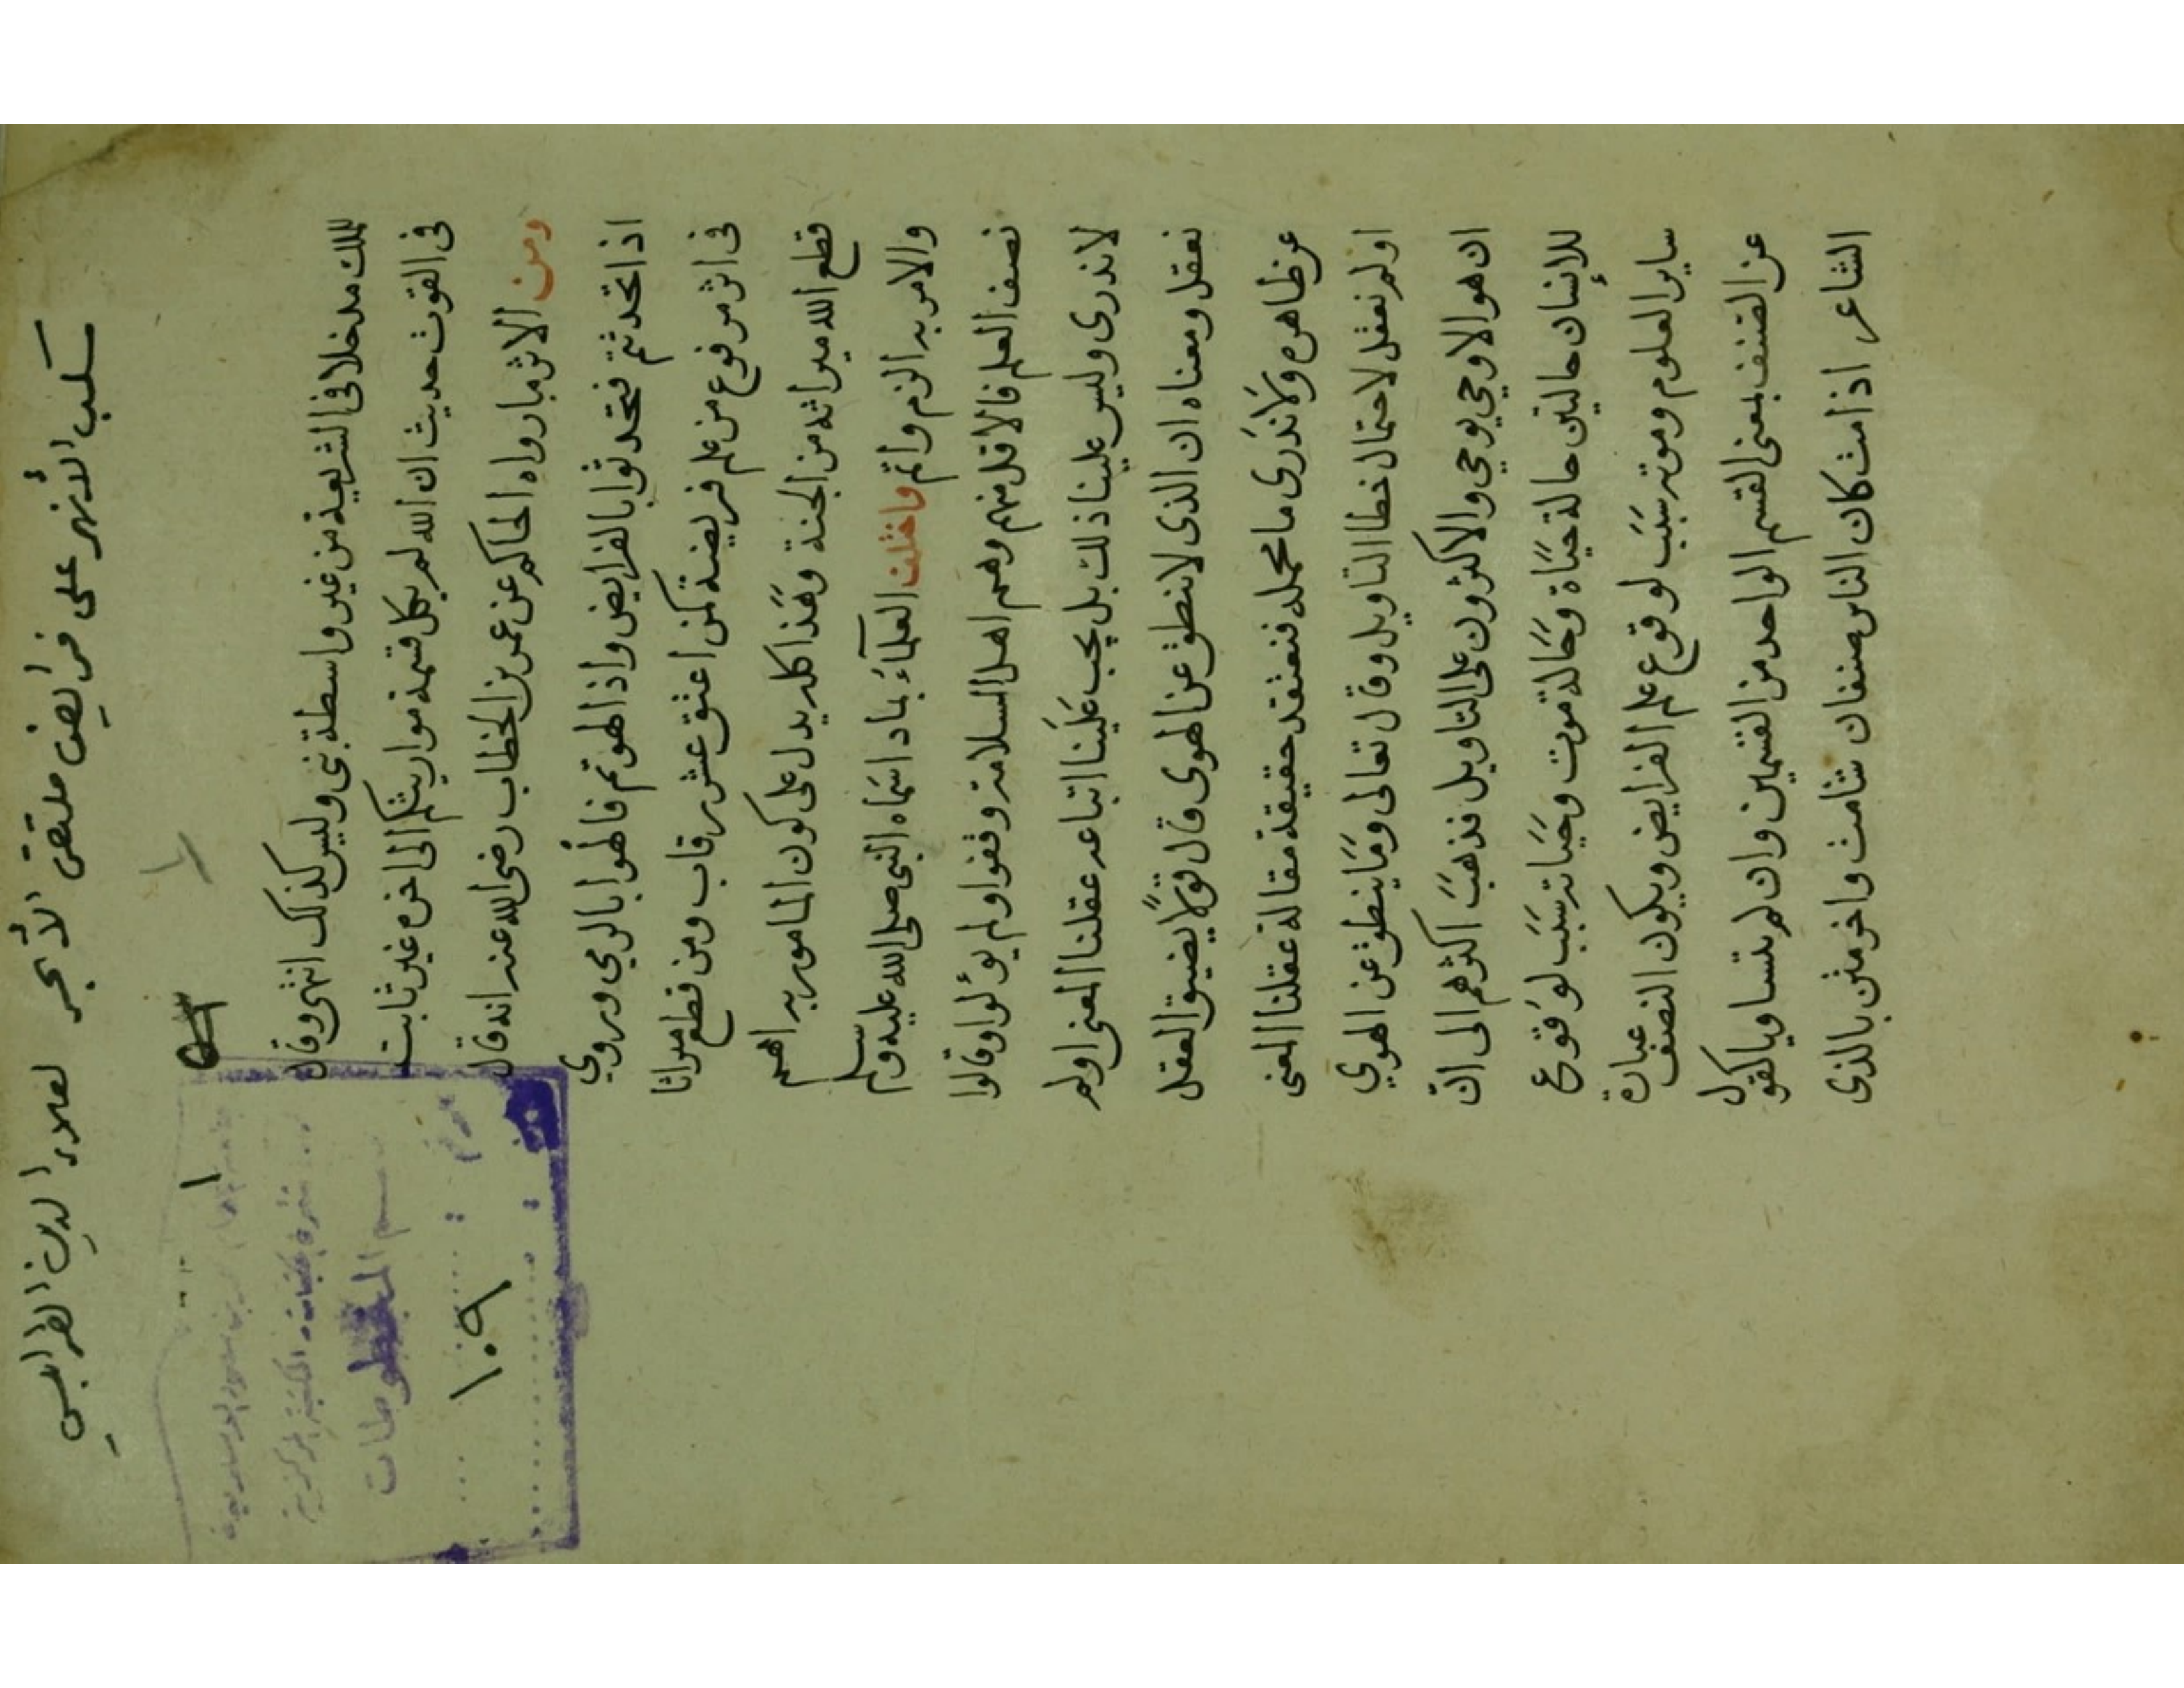 سكب الأنهر على فرائض ملتقى الأبحر لعلاء الدين الطرابلسي
١
للملك مدخلا في الشريعة من غير واسطة نبي وليس كذلك انتهى وقال
في القوت حديث ان الله لم يكل قسمة مواريثكم الى اخره غير ثابت
ومن الاثر مارواه الحاكم عن عمر بن الخطاب رضي الله عنه انه قال
اذا تحدثتم فتحدثوا بالفرايض واذا لهوتم فالهُوا بالرمي وروي
في اثر مرفوع من علم فريضة كمن اعتق عشر رقاب ومن قطع ميراثا
قطع الله ميراثه من الجنة وَهَذا كله يدل على كون المامور به اهم
والامر به الزم واتم واختلف العلمآءُ بما داسماه النبي صلى الله عليه وسلم
نصف العلم فالاقل منهم وهم اهل السلامة وقفوا ولم يؤلوا وقالوا
لاندرى وليس علينا ذلك بل يجب عَلَينا اتباعه عقلنا المعنى اولم
نعقل ومعناه ان الذى لا ينطق عن الهوى قال قَولًا يضيق العقل
عن ظاهره وَلَاندَرى ما محمله فنعتقد حقيقة مقالة عقلنا المعنى
اولم نعقل لاحتمال خطا التاويل وقال تعالى وَمَا ينطق عن الهوي
ان هو الا وحي يوحي والاكثرون على التاويل فذهبَ اكثرهم الى انّ
للإنسان حالتين حالة حَيَاة وَحَالة موت وَحَيَاته سَبَب لوَقوع
ساير العلوم وموته سَبَب لوقوع علم الفرايض ويكون النصف عبارة
عن الصنف بمعنى القسم الواحد من القسمين وان لم يتساويا كقول
الشاعر اذا مت كان الناس صنفان شامت واخر مثن بالذى
قسم المخطوطات
١٠٩